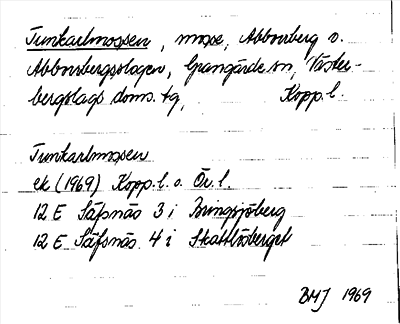 Tunkarlmossen, mosse, Abborrberg o.
Abborrbergsslogen, Grangärde sn, Väster-
bergslags doms. tg, Kopp. l.
Tunkarlmossen
ek (1969) Kopp. l. o. Ör. l.
12 E Säfsnäs 3 i Bringsjöberg
12 E Säfsnäs 4 i Skattlösberget
BMJ 1969